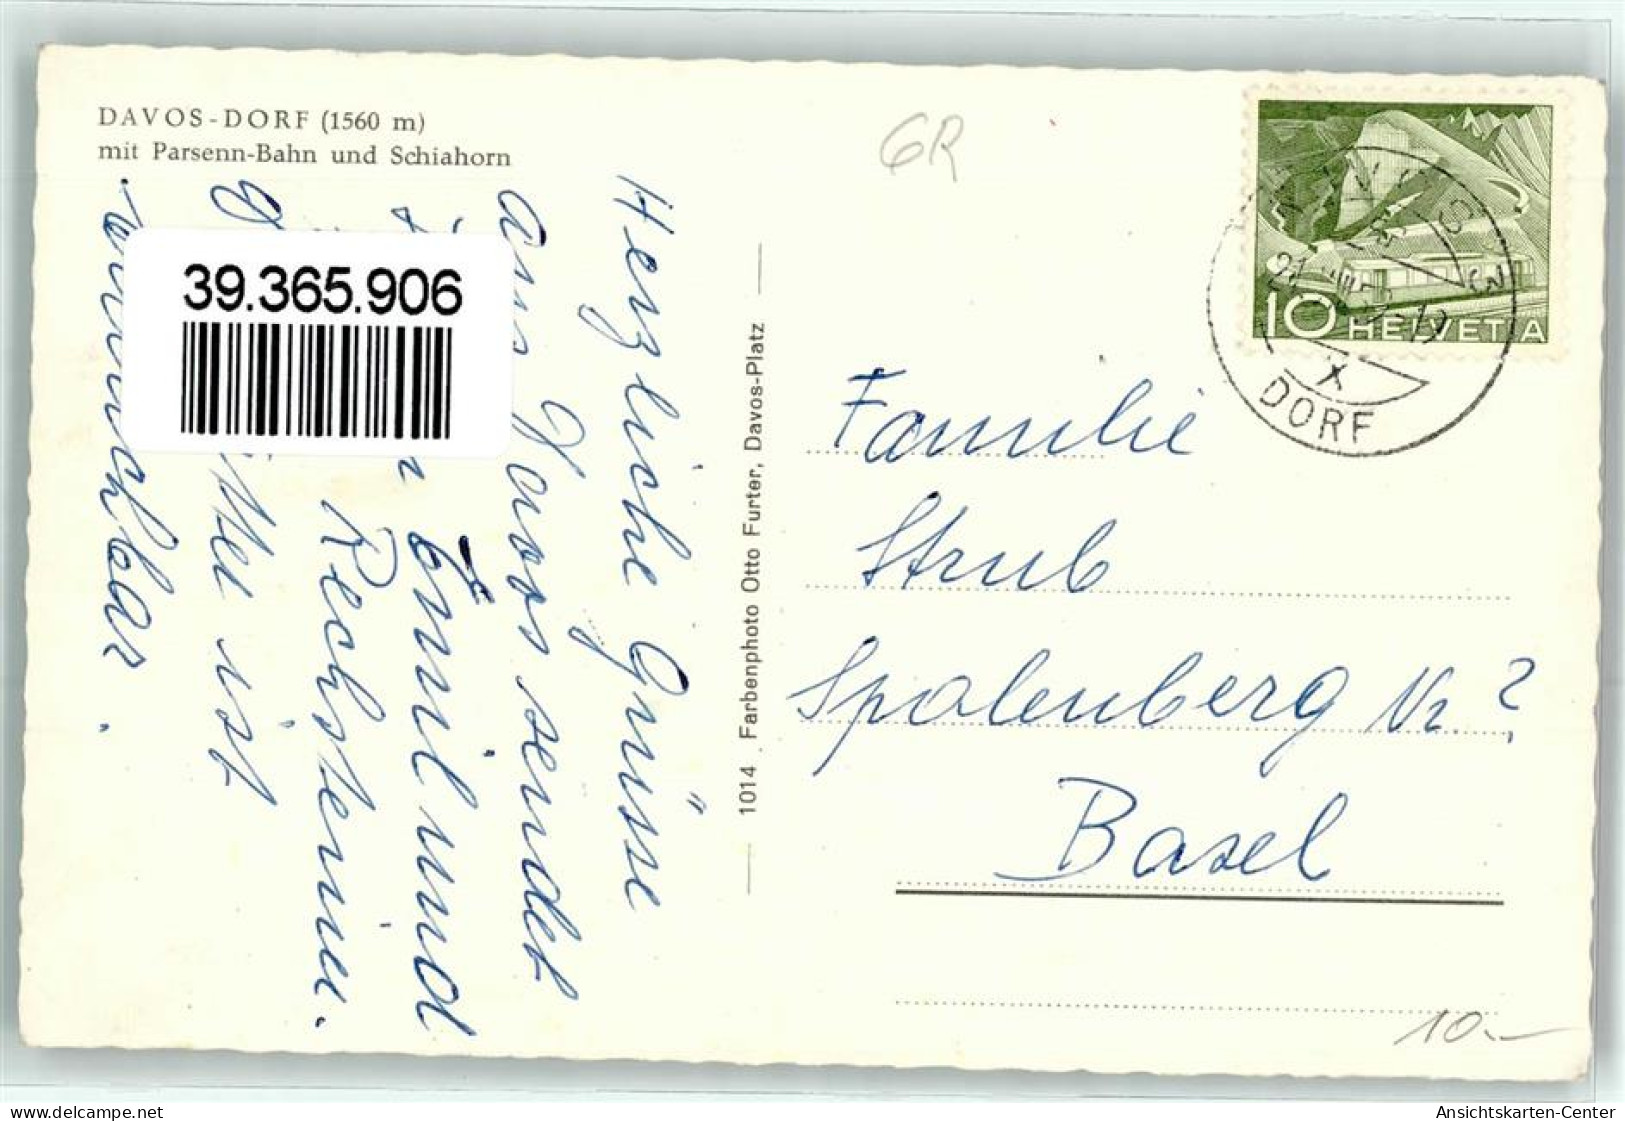 DAVOS-DORF (1560 m)
mit Parsenn-Bahn und Schiahorn
39.365.906
Herzliche Grüsse
aus Davos sendet
Emmil und
Rechsteiner.
ist
wunderbar.
1014 Farbenphoto Otto Furter, Davos-Platz
GR
10 HELVETIA
DORF
Familie
Strub
Spalenberg Nr. ?
Basel
10.-
www.delcampe.net
Ansichtskarten-Center